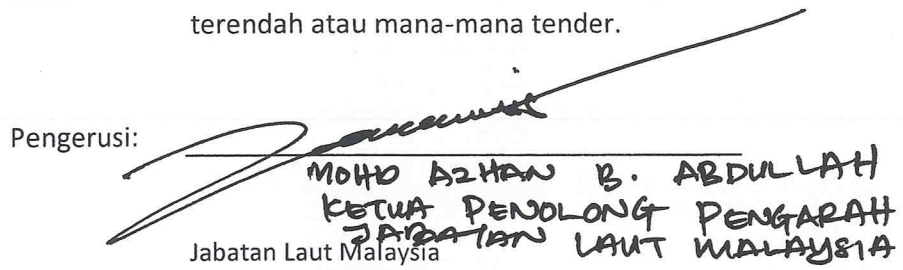 terendah atau mana-mana tender.
Pengerusi:
MOHD AZHAN B. ABDULLAH
KETUA PENOLONG PENGARAH
JABATAN LAUT MALAYSIA
Jabatan Laut Malaysia